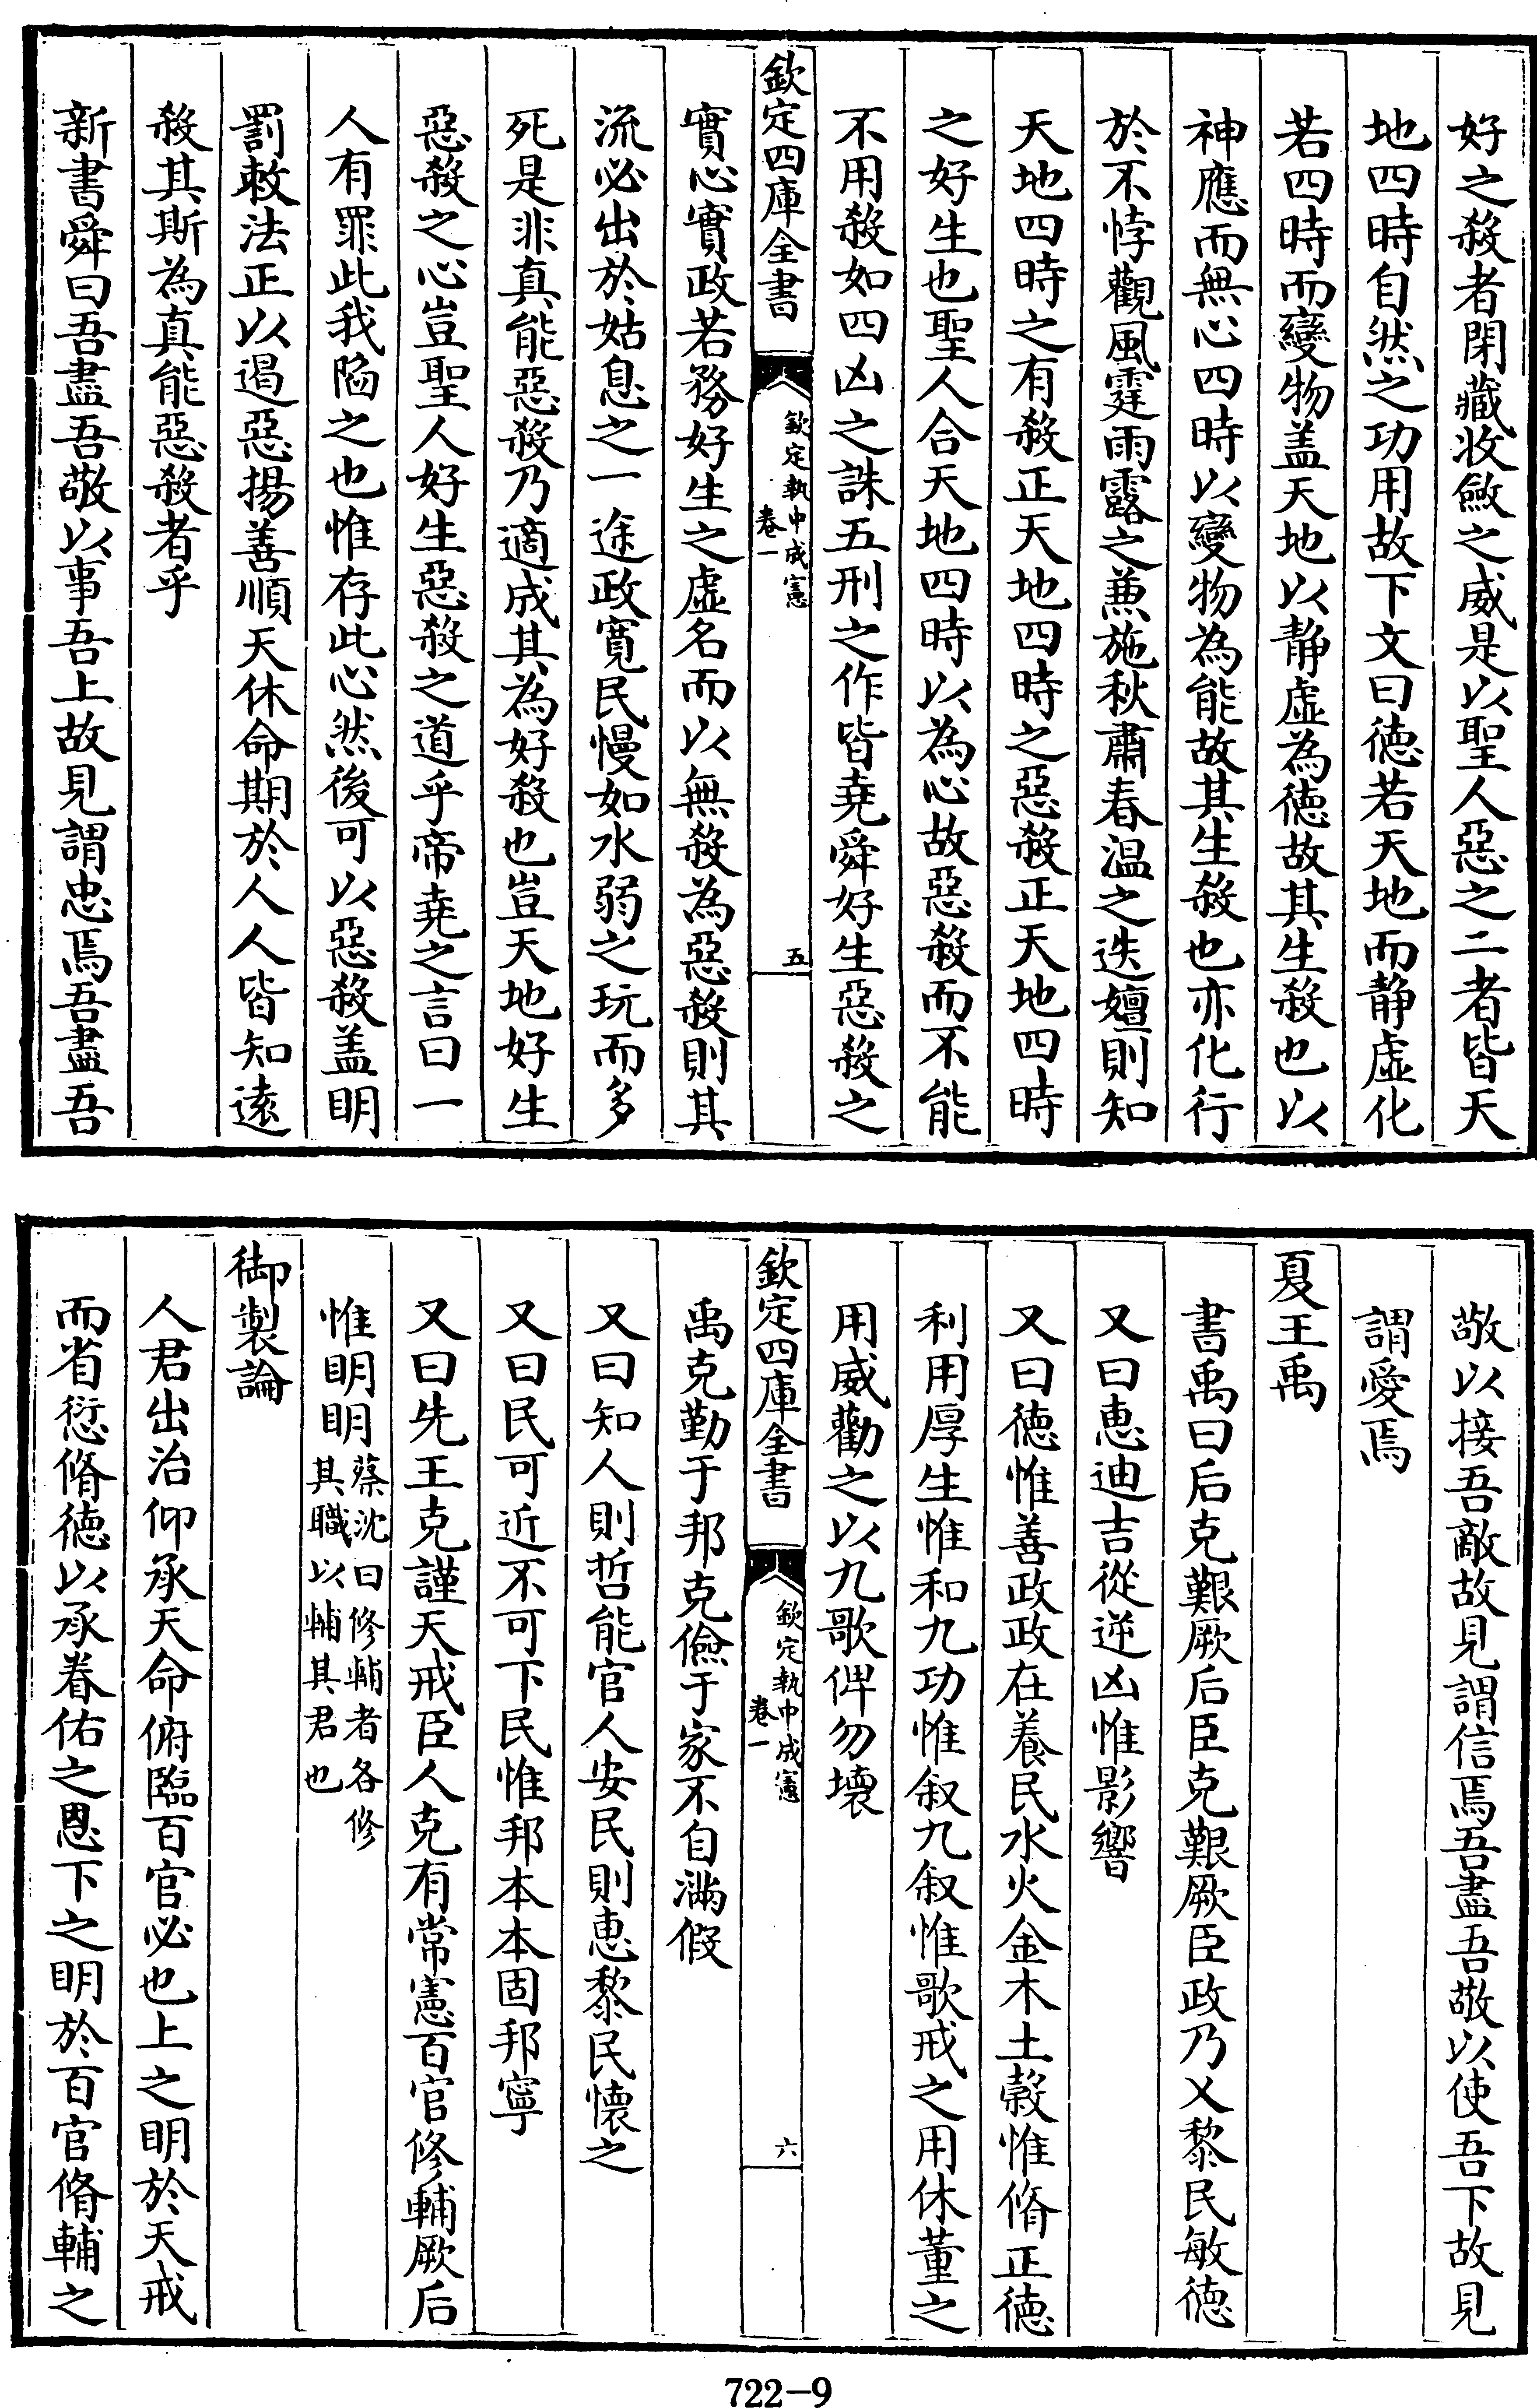 好之殺者閉藏收斂之威是以聖人惡之二者皆天
地四時自然之功用故下文曰徳若天地而静虛化
若四時而變物盖天地以静虛為徳故其生殺也以
神應而無心四時以變物為能故其生殺也亦化行
於不悖觀風霆雨露之兼施秋肅春温之迭嬗則知
天地四時之有殺正天地四時之惡殺正天地四時
之好生也聖人合天地四時以為心故惡殺而不能
不用殺如四凶之誅五刑之作皆堯舜好生惡殺之
欽定四庫全書
欽定執中成憲
卷一
五
實心實政若務好生之虛名而以無殺為惡殺則其
流必出於姑息之一途政寛民慢如水弱之玩而多
死是非真能惡殺乃適成其為好殺也豈天地好生
惡殺之心豈聖人好生惡殺之道乎帝堯之言曰一
人有罪此我陷之也惟存此心然後可以惡殺盖明
罰敕法正以遏惡揚善順天休命期於人人皆知遠
殺其斯為真能惡殺者乎
新書舜曰吾盡吾敬以事吾上故見謂忠焉吾盡吾
敬以接吾敵故見謂信焉吾盡吾敬以使吾下故見
謂愛焉
夏王禹
書禹曰后克艱厥后臣克艱厥臣政乃乂黎民敏徳
又曰惠迪吉從逆凶惟影響
又曰徳惟善政政在養民水火金木土穀惟脩正徳
利用厚生惟和九功惟叙九叙惟歌戒之用休董之
用威勸之以九歌俾勿壊
欽定四庫全書
欽定執中成憲
卷一
六
禹克勤于邦克儉于家不自滿假
又曰知人則哲能官人安民則惠黎民懐之
又曰民可近不可下民惟邦本本固邦寧
又曰先王克謹天戒臣人克有常憲百官修輔厥后
惟明明蔡沈曰修輔者各修
其職以輔其君也
御製論
人君出治仰承天命俯臨百官必也上之明於天戒
而省愆脩徳以承眷佑之恩下之明於百官脩輔之
722-9